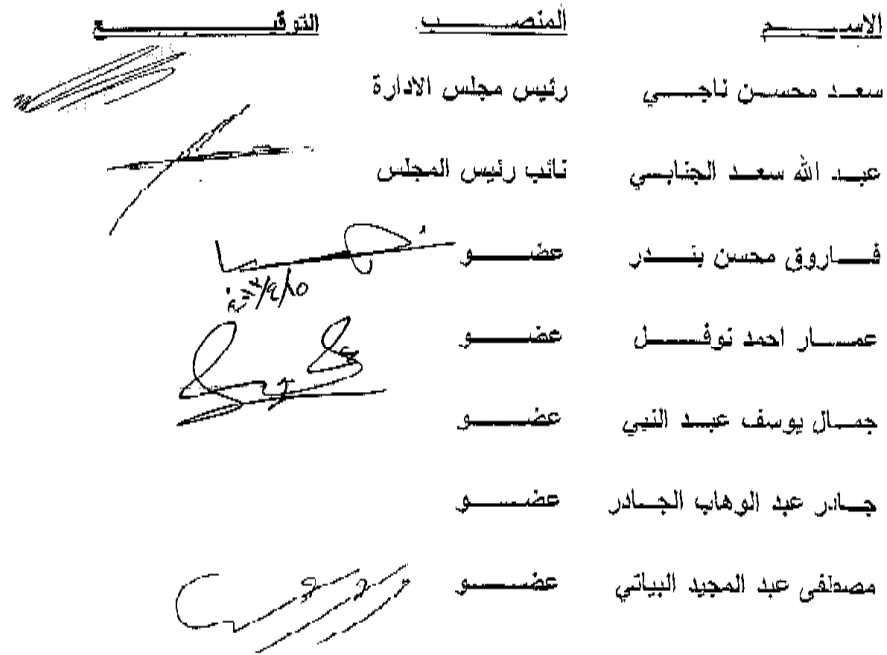 الاسم المنصب التوقيع
سعد محسن ناجي رئيس مجلس الادارة
عبد الله سعد الجنابي نائب رئيس المجلس
فاروق محسن بندر عضو
عمار احمد نوفل عضو
جمال يوسف عبد النبي عضو
جادر عبد الوهاب الجادر عضو
مصطفى عبد المجيد البياتي عضو